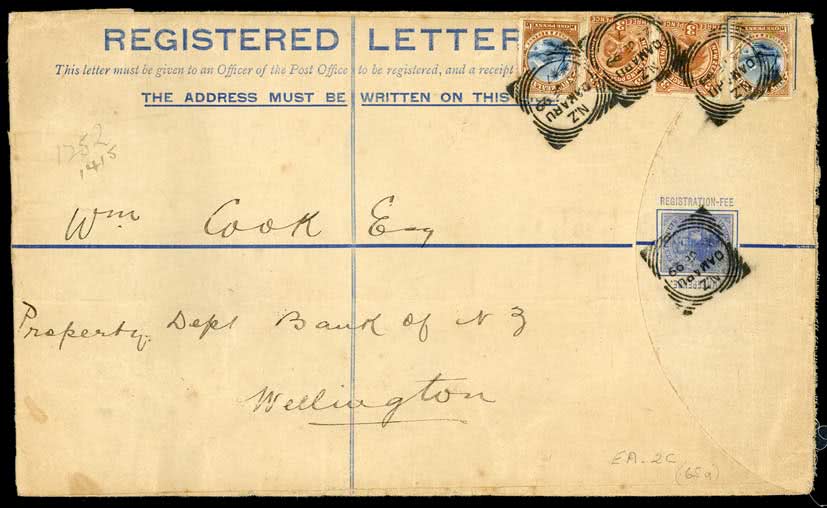 REGISTERED LETTER
This letter must be given to an Officer of the Post Office to be registered, and a receipt
THE ADDRESS MUST BE WRITTEN ON THIS
1252
1415
REGISTRATION-FEE
Wm Cook Esq
Property Dept Bank of N Z
Wellington
NZ
OAMARU
NZ
OAMARU
NZ
OAMARU
NZ
OAMARU
99
EA-2C
(65a)